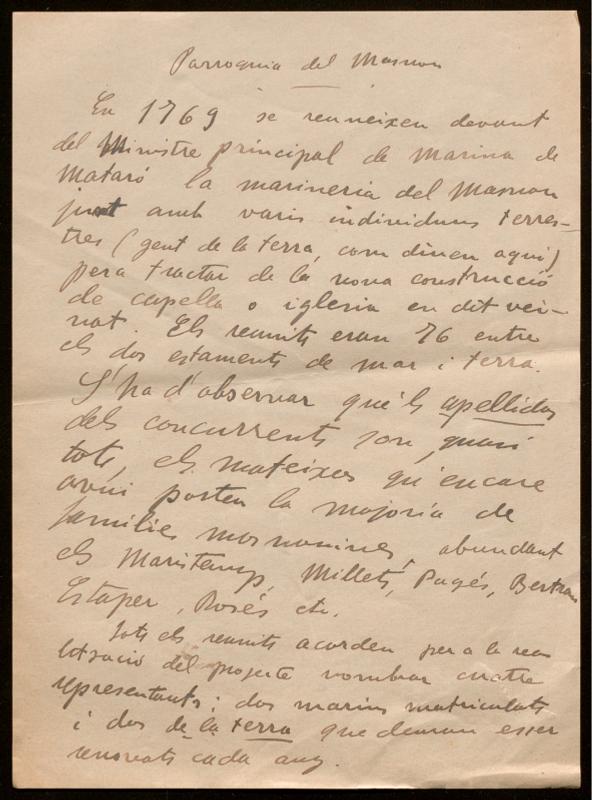 Parroquia del Masnou
En 1769 se reuneixen devant
del Ministre principal de Marina de
Mataró la marineria del Masnou
junt amb varis individuus terres-
tres (gent de la terra, com diuen aquí)
pera tractar de la nova construcció
de capella o iglesia en dit vei-
nat. Els reunits eran 76 entre
els dos estaments de mar i terra.
S'ha d'observar que'ls apellidos
dels concurrents son, quasi
tots, els mateixos qu'encare
avui porten la majoría de
families masnovines, abundant
els Maristany, Millet, Pagés, Bertran
Estaper, Rosés etc.
Tots els reunits acorden per a la rea
litsació del projecte nombrar cuatre
representants; dos marins matriculats
i dos de la terra que deuran esser
renovats cada any.